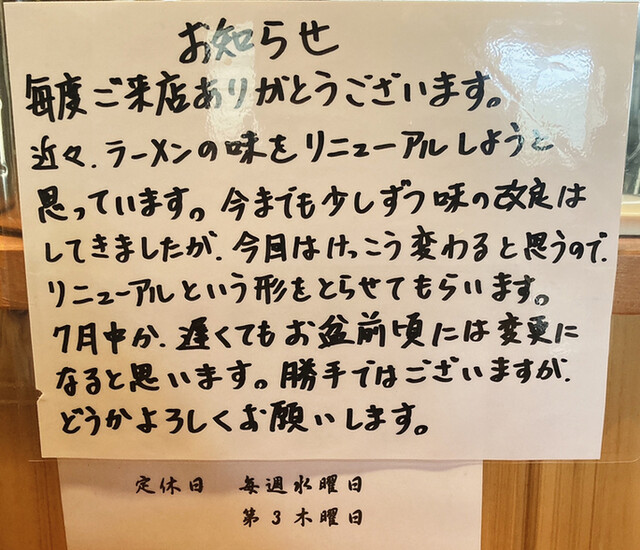 お知らせ
毎度ご来店ありがとうございます。
近々、ラーメンの味をリニューアルしようと
思っています。今までも少しずつ味の改良は
してきましたが、今回はけっこう変わると思うので、
リニューアルという形をとらせてもらいます。
7月中か、遅くてもお盆前頃には変更に
なると思います。勝手ではございますが、
どうかよろしくお願いします。
定休日 毎週水曜日
第3木曜日